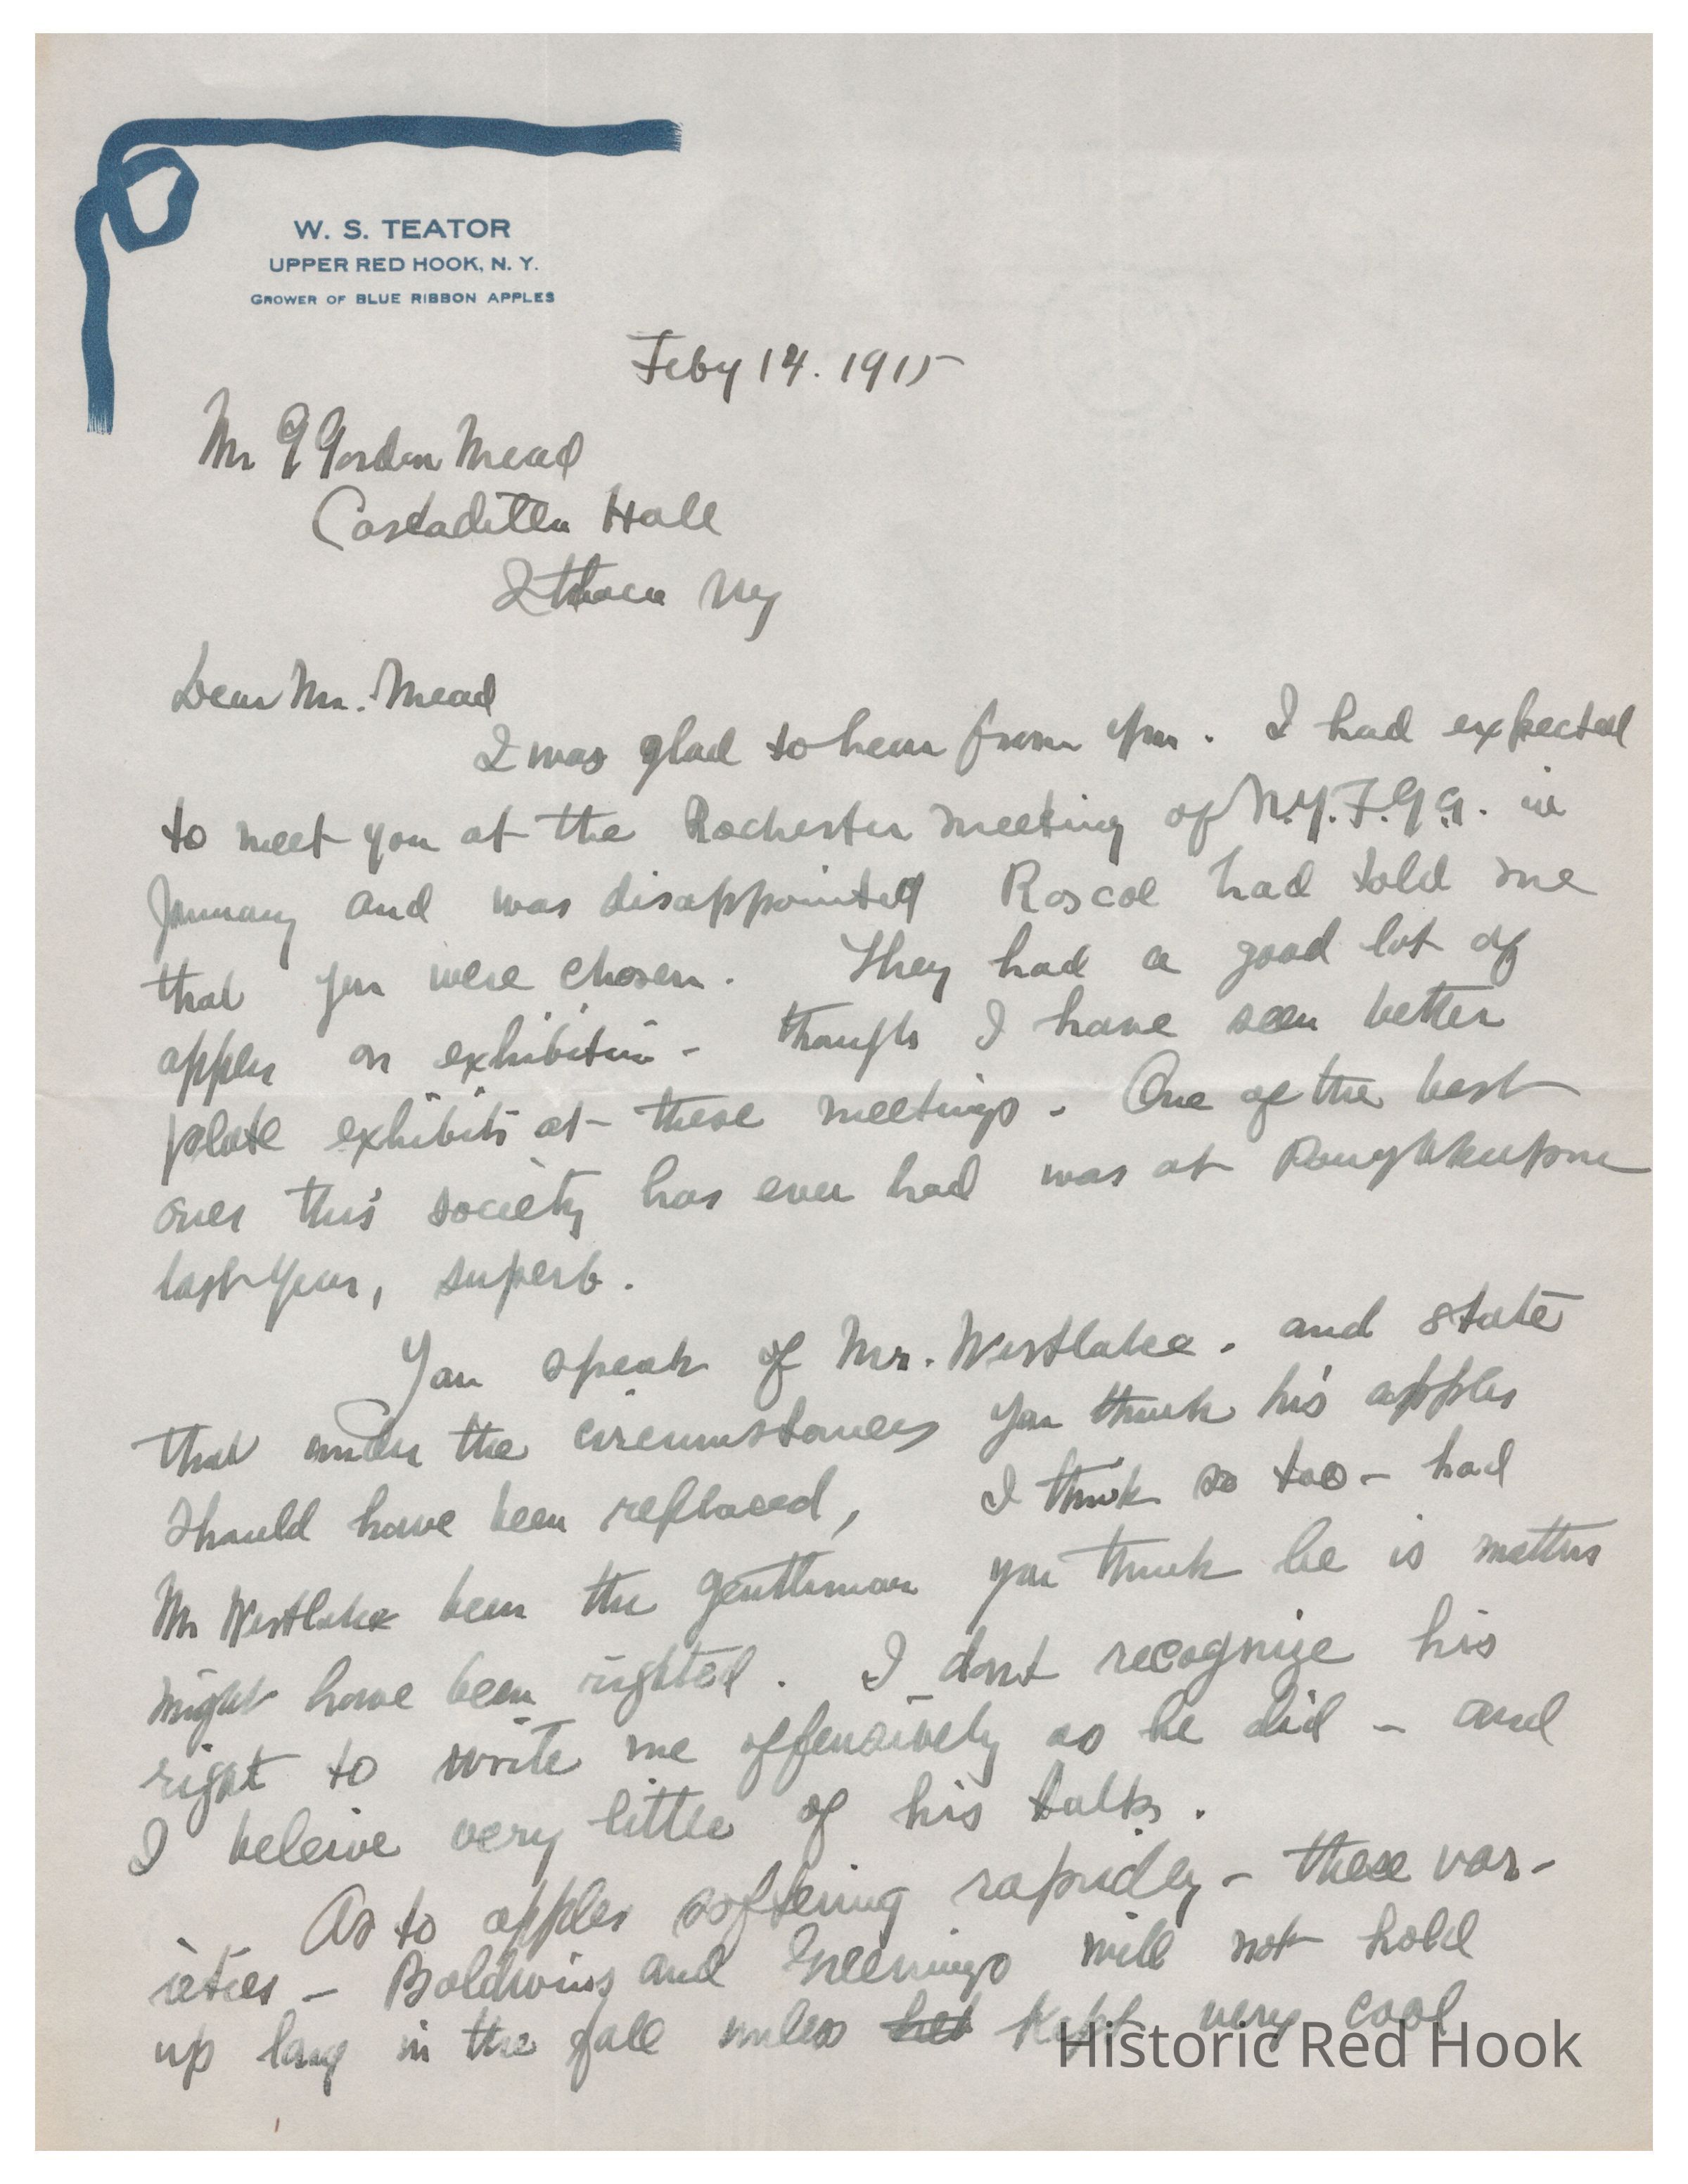 W. S. TEATOR
UPPER RED HOOK, N. Y.
GROWER OF BLUE RIBBON APPLES
Feby 14. 1915
Mr G Gordon Mead
Cascadilla Hall
Ithaca NY
Dear Mr. Mead
I was glad to hear from you. I had expected
to meet you at the Rochester meeting of N.Y.F.G.A. in
January and was disappointed Roscoe had told me
that you were chosen. They had a good lot of
apples on exhibition - though I have seen better
plate exhibits at these meetings. One of the best
ones this society has ever had was at Poughkeepsie
last year, superb.
You speak of Mr. Westlake. and state
that under the circumstances you think his apples
should have been replaced, I think so too - had
Mr Westlake been the gentleman you think he is matters
might have been righted. I dont recognize his
right to write me offensively as he did - and
I beleive very little of his talk.
As to apples softening rapidly - these var-
ieties - Baldwins and Greenings will not hold
up long in the fall unless kept very cool
Historic Red Hook